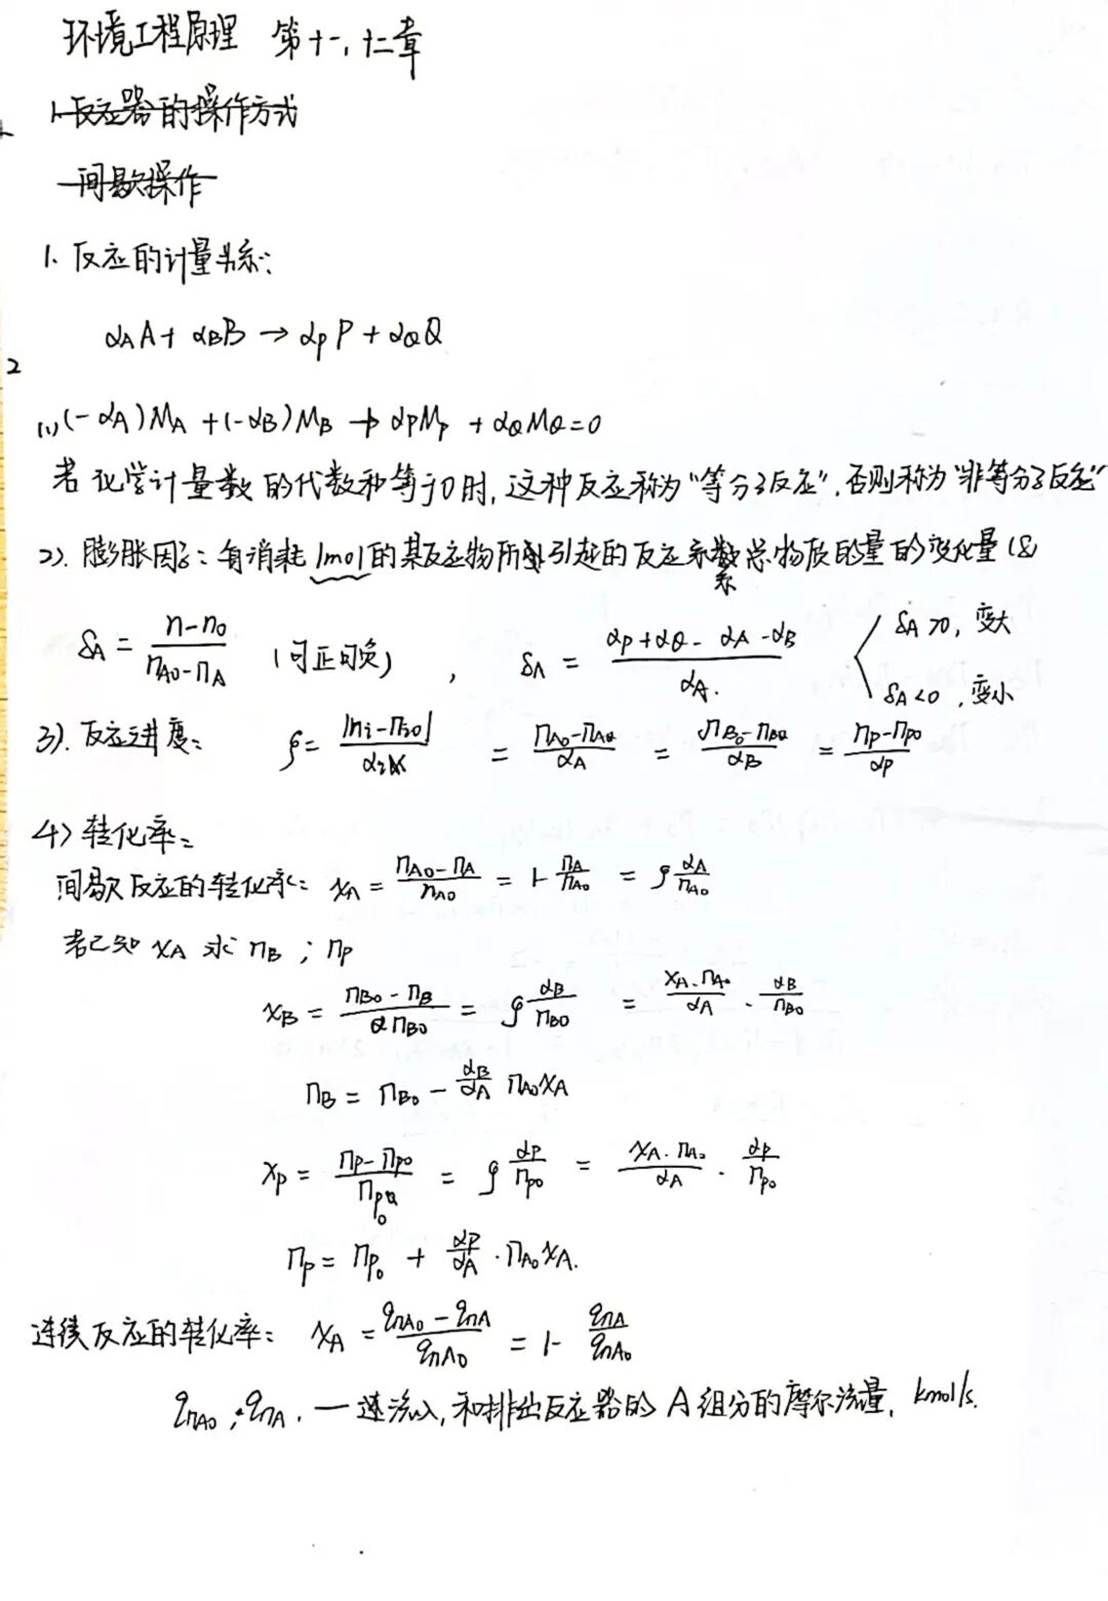 环境工程原理 第十一,十二章
1.反应器的操作方式
间歇操作
1. 反应的计量关系:
αA A + αB B → αP P + αQ Q
(1) (-αA)MA + (-αB)MB + αPMP + αQMQ = 0
若化学计量数的代数和等于0时,这种反应称为“等分子反应”,否则称为“非等分子反应”
2). 膨胀因子: 每消耗1mol的某反应物所引起的反应系总物质的量的变化量(δ)
δA = (n-n0)/(nA0-nA) (可正可负) , δA = (αP+αQ-αA-αB)/αA. δA>0, 变大
δA<0, 变小
3). 反应进度: ξ = |ni-ni0|/αi = (nA0-nA)/αA = (nB0-nB)/αB = (nP-nP0)/αP
4) 转化率:
间歇反应的转化率: xA = (nA0-nA)/nA0 = 1-nA/nA0 = ξ αA/nA0
若已知 xA 求 nB ; nP
xB = (nB0-nB)/nB0 = ξ αB/nB0 = (xA·nA0)/αA · αB/nB0
nB = nB0 - αB/αA nA0xA
xP = (nP-nP0)/nP0 = ξ αP/nP0 = (xA·nA0)/αA · αP/nP0
nP = nP0 + αP/αA · nA0xA.
连续反应的转化率: xA = (qnA0-qnA)/qnA0 = 1- qnA/qnA0
qnA0 ; qnA. — 流入,和排出反应器的A组分的摩尔流量, kmol/s.